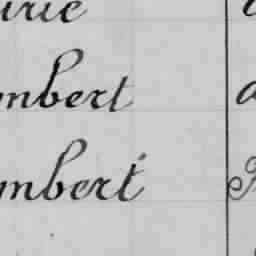 urie
mbert
mbert